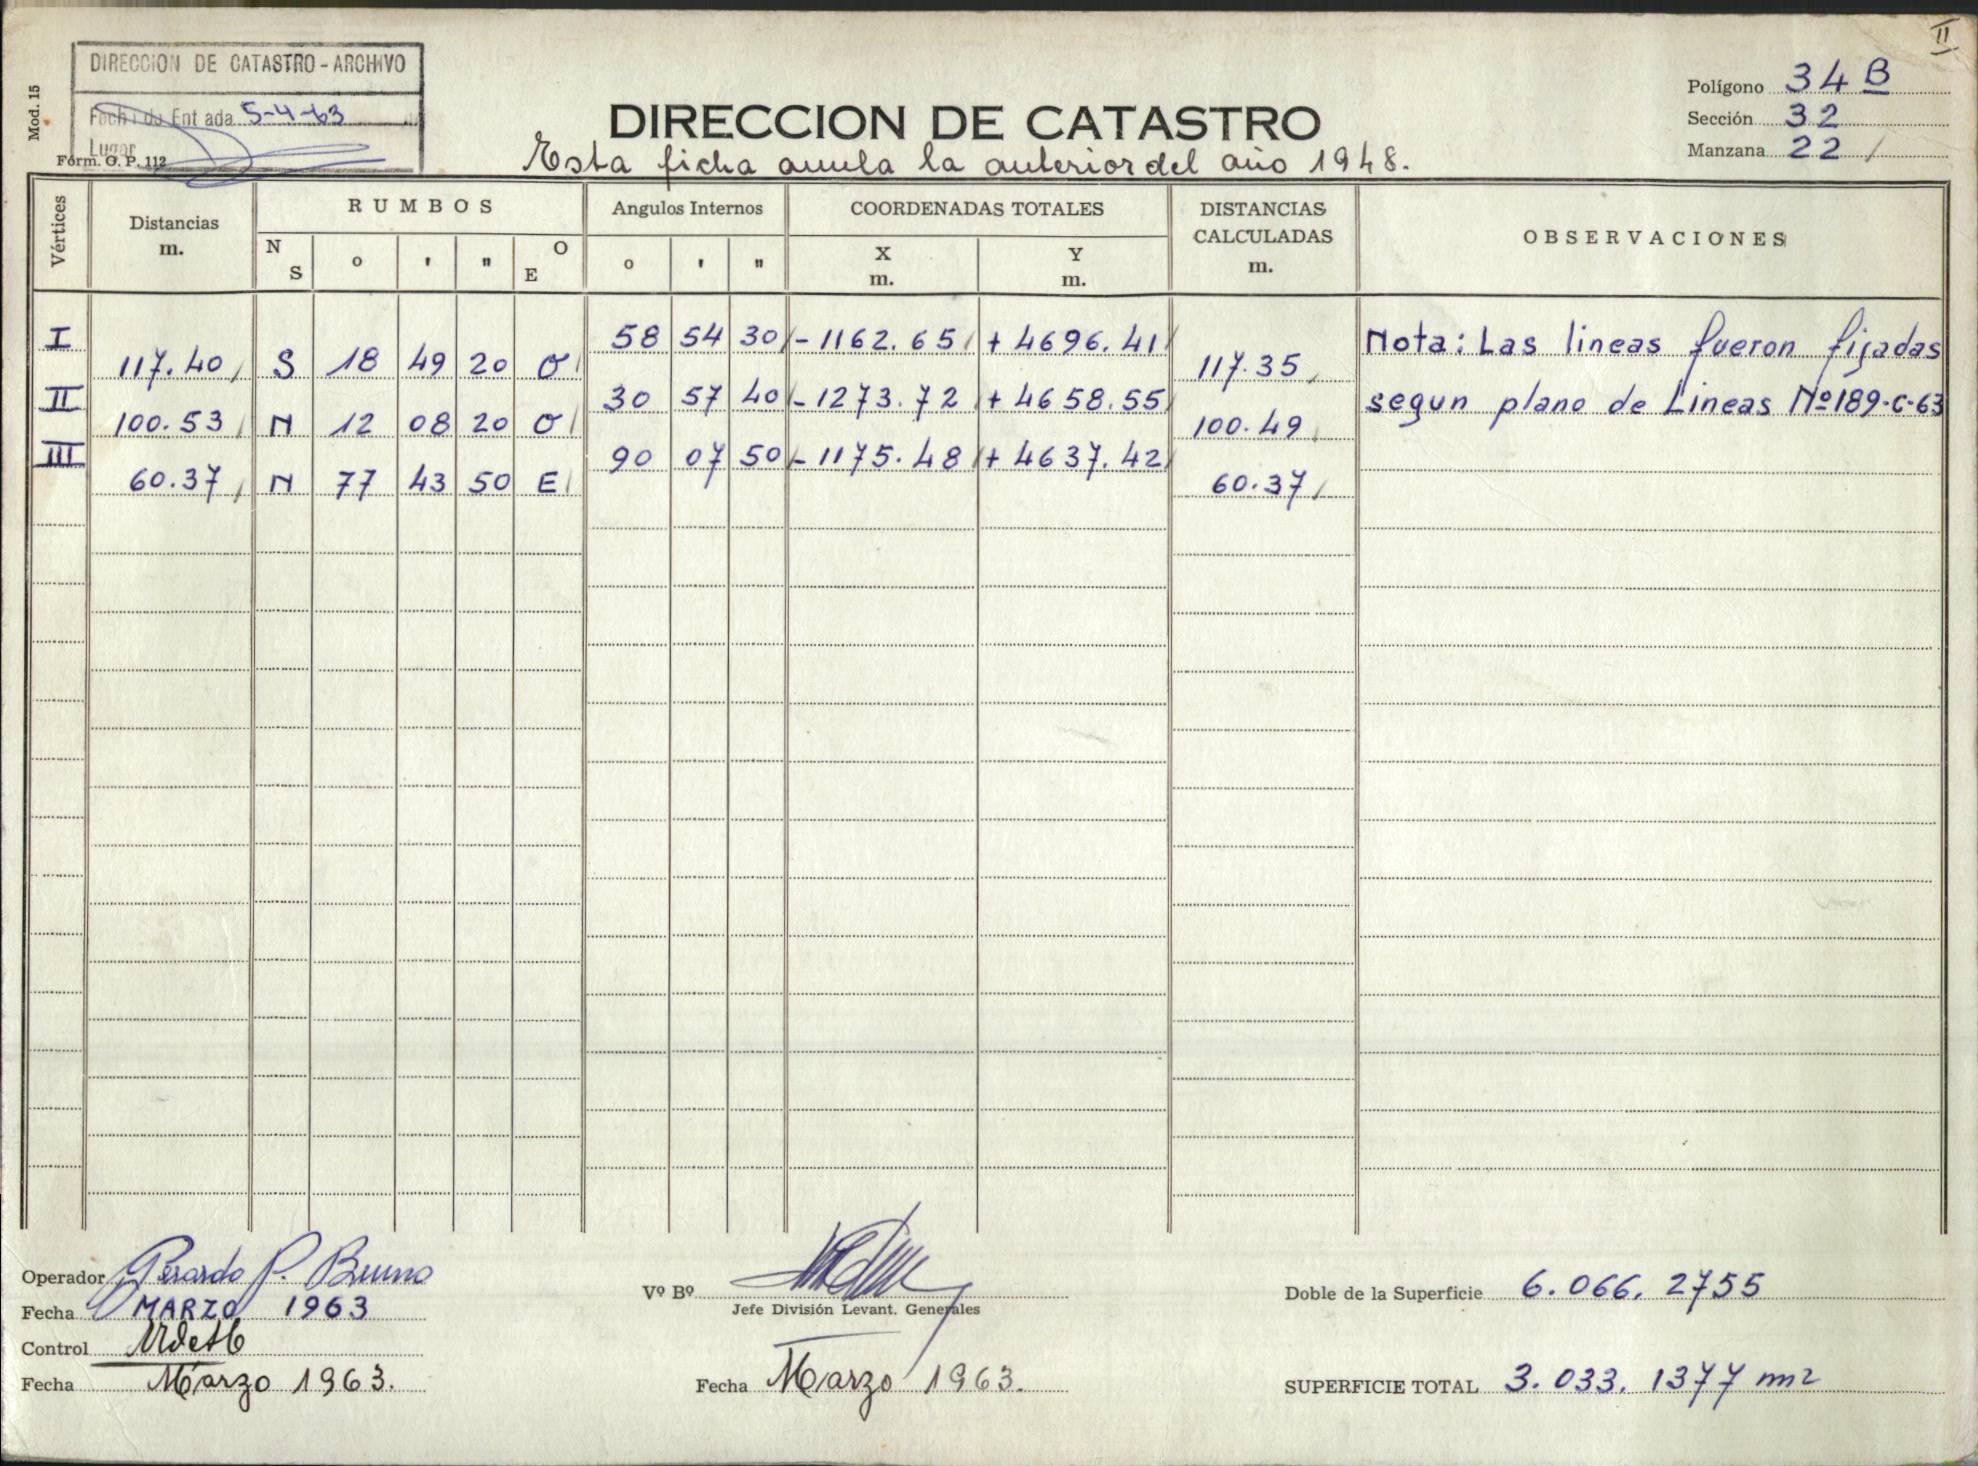 II
DIRECCION DE CATASTRO - ARCHIVO
Fecha de Entada 5-4-63
Lugar
Mod. 15
Form. O. P. 112
DIRECCION DE CATASTRO
Esta ficha anula la anterior del año 1948.
Polígono 34 B
Sección 32
Manzana 22
Vértices Distancias m. RUMBOS Angulos Internos COORDENADAS TOTALES DISTANCIAS CALCULADAS m. OBSERVACIONES
N S o ' " O E o ' " X m. Y m.
I 58 54 30 - 1162.65 + 4696.41 Nota: Las lineas fueron fijadas
117.40 S 18 49 20 O 117.35
II 30 57 40 - 1273.72 + 4658.55 segun plano de Lineas Nº189-C-63
100.53 N 12 08 20 O 100.49
III 90 07 50 - 1175.48 + 4637.42
60.37 N 77 43 50 E 60.37
Operador Gerardo P. Bruno
Fecha MARZO 1963
Control
Fecha Marzo 1963.
Vº Bº
Jefe División Levant. Generales
Fecha Marzo 1963.
Doble de la Superficie 6.066.2755
SUPERFICIE TOTAL 3.033.1377 m2